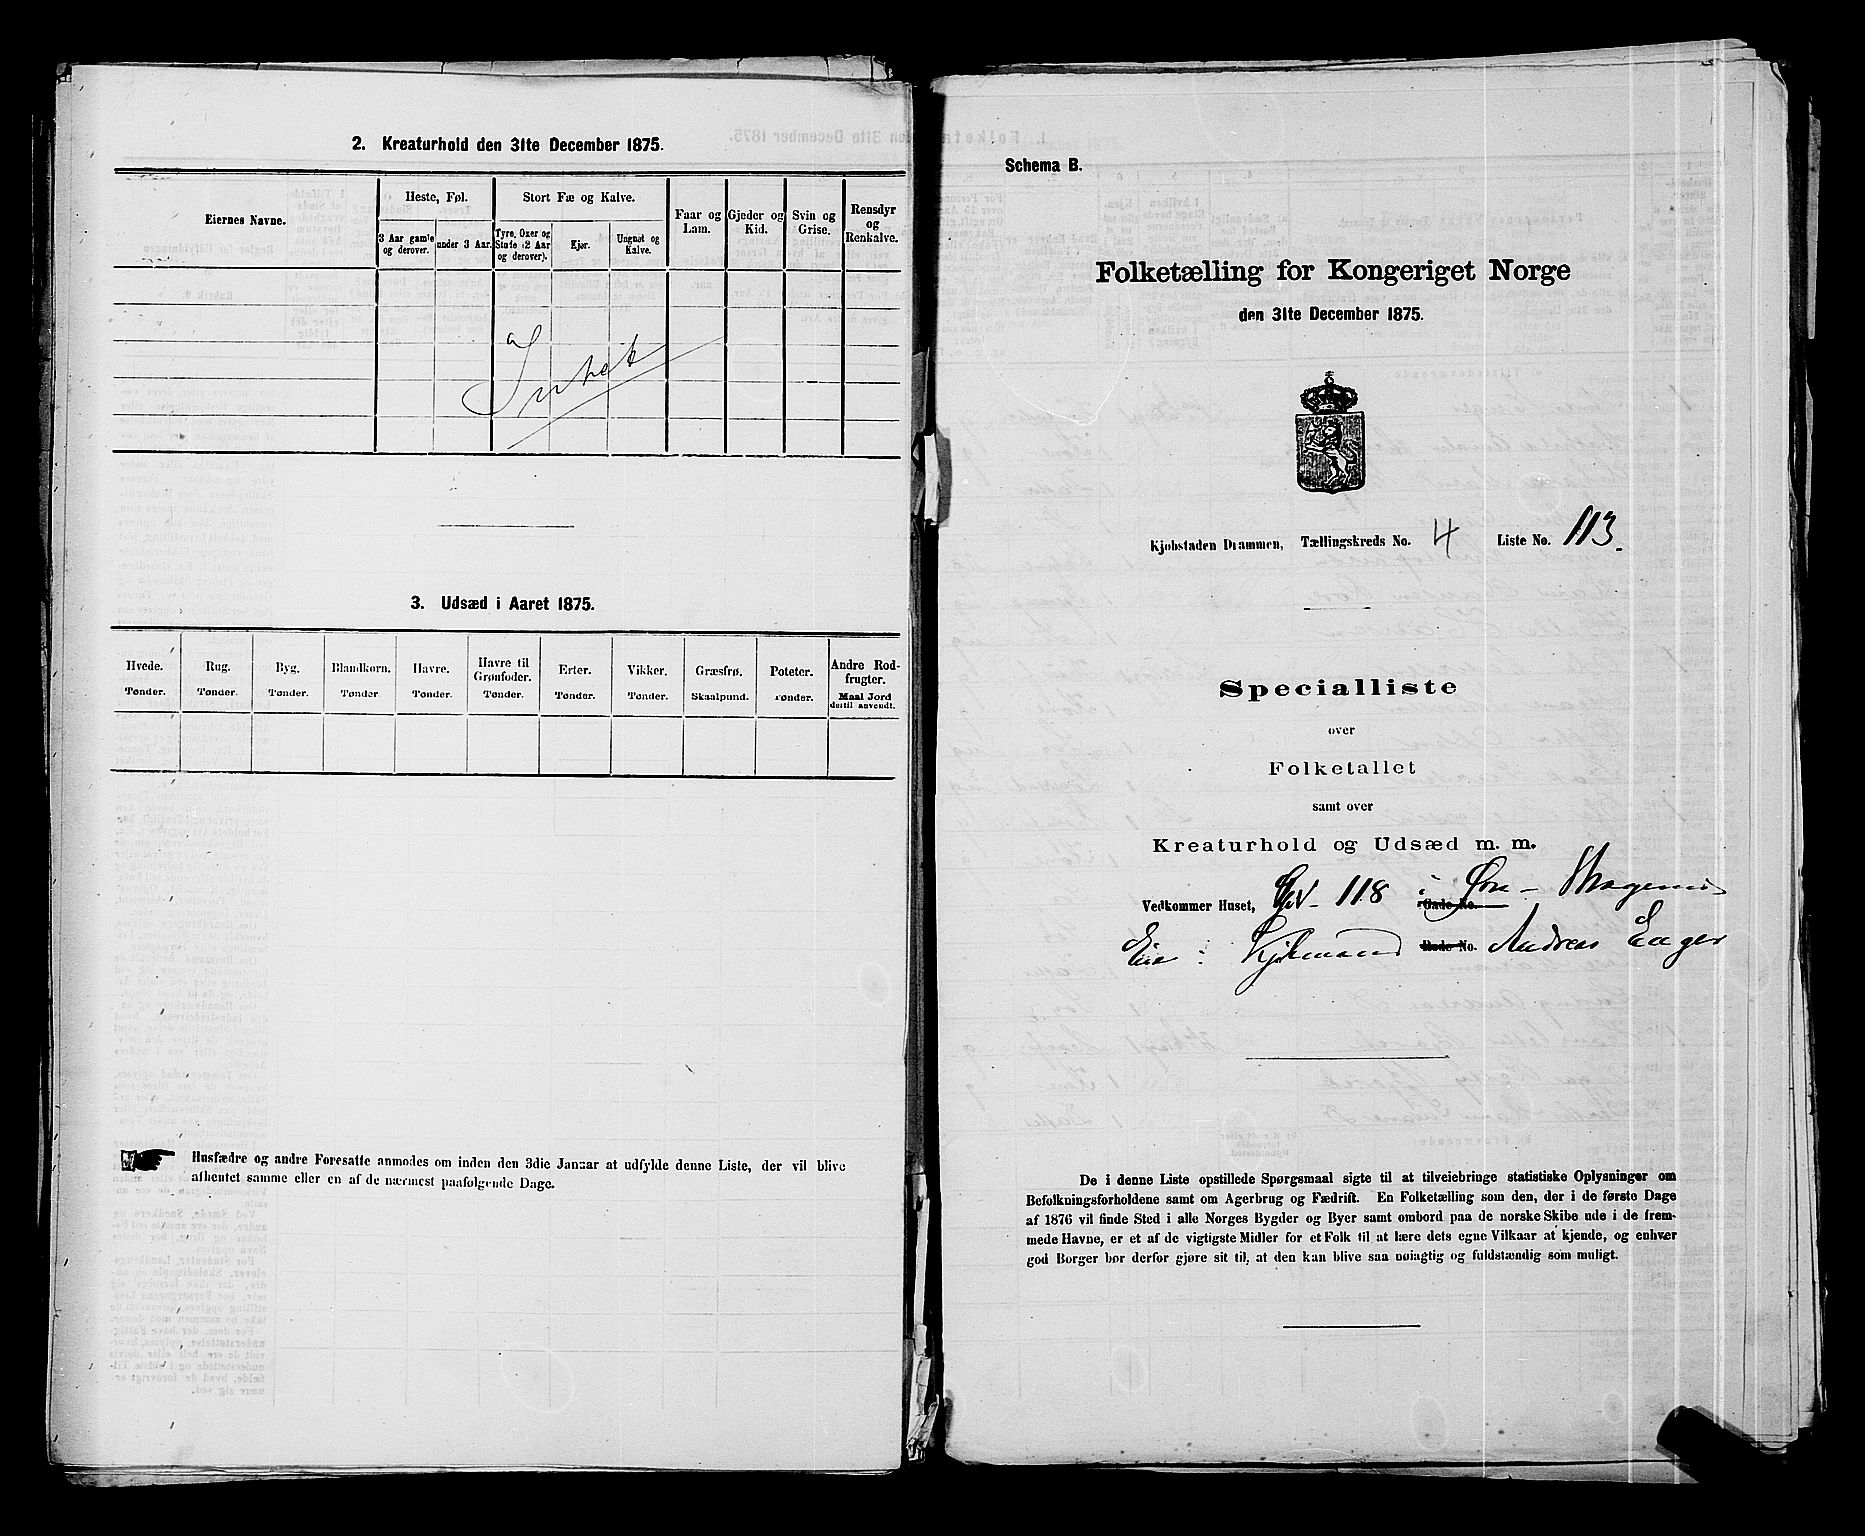 2. Kreaturhold den 31te December 1875.
Eiernes Navne.
Heste, Føl.
Stort Fæ og Kalve.
Faar og Lam.
Gjeder og Kid.
Svin og Grise.
Rensdyr og Renkalve.
3 Aar gamle og derover.
under 3 Aar.
Tyre, Oxer og Stude (2 Aar og derover).
Kjør.
Ungnøt og Kalve.
Intet
3. Udsæd i Aaret 1875.
Hvede. Rug. Byg. Blandkorn. Havre. Havre til Grønfoder. Erter. Vikker. Græsfrø. Poteter. Andre Rodfrugter.
Tønder. Tønder. Tønder. Tønder. Tønder. Tønder. Tønder. Tønder. Skaalpund. Tønder. Maal Jord dertil anvendt.
Husfædre og andre Foresatte anmodes om inden den 3die Januar at udfylde denne Liste, der vil blive
afhentet samme eller en af de nærmest paafølgende Dage.
Schema B.
Folketælling for Kongeriget Norge
den 31te December 1875.
Kjøbstaden Drammen, Tællingskreds No. 4 Liste No. 113.
Specialliste
over
Folketallet
samt over
Kreaturhold og Udsæd m. m.
Vedkommer Huset, 118 i Gade No.
Rode No. Andreas Enger
De i denne Liste opstillede Spørgsmaal sigte til at tilveiebringe statistiske Oplysninger om
Befolkningsforholdene samt om Agerbrug og Fædrift. En Folketælling som den, der i de første Dage
af 1876 vil finde Sted i alle Norges Bygder og Byer samt ombord paa de norske Skibe ude i de frem-
mede Havne, er et af de vigtigste Midler for et Folk til at lære dets egne Vilkaar at kjende, og enhver
god Borger bør derfor gjøre sit til, at den kan blive saa nøiagtig og fuldstændig som muligt.